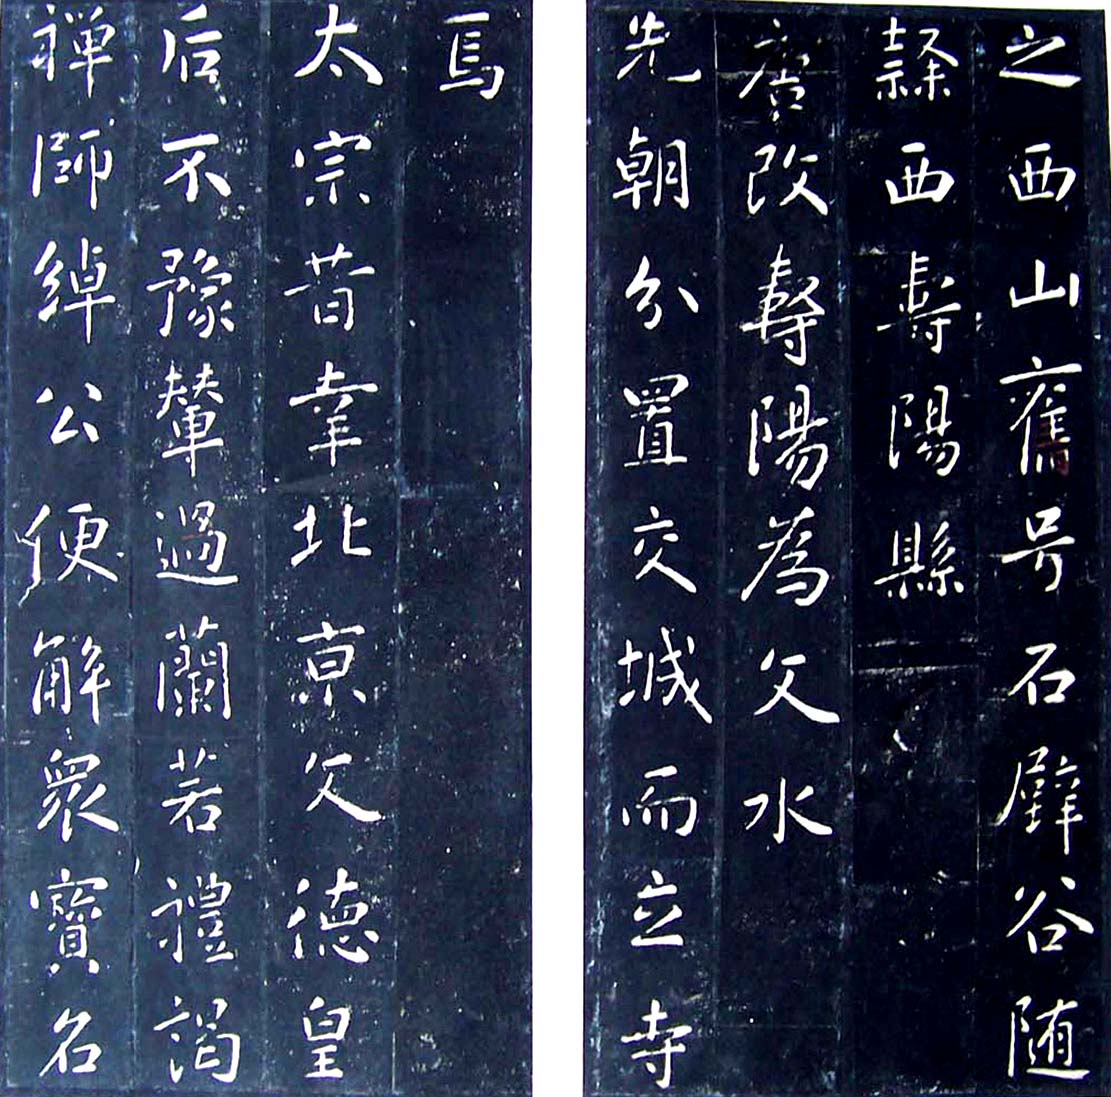 之西山舊号石壁谷随
隸西壽陽縣
唐改壽陽為文水
先朝分置交城而立寺
焉
太宗昔幸北京文德皇
后不豫輦過蘭若禮謁
禅師綽公便解衆寶名